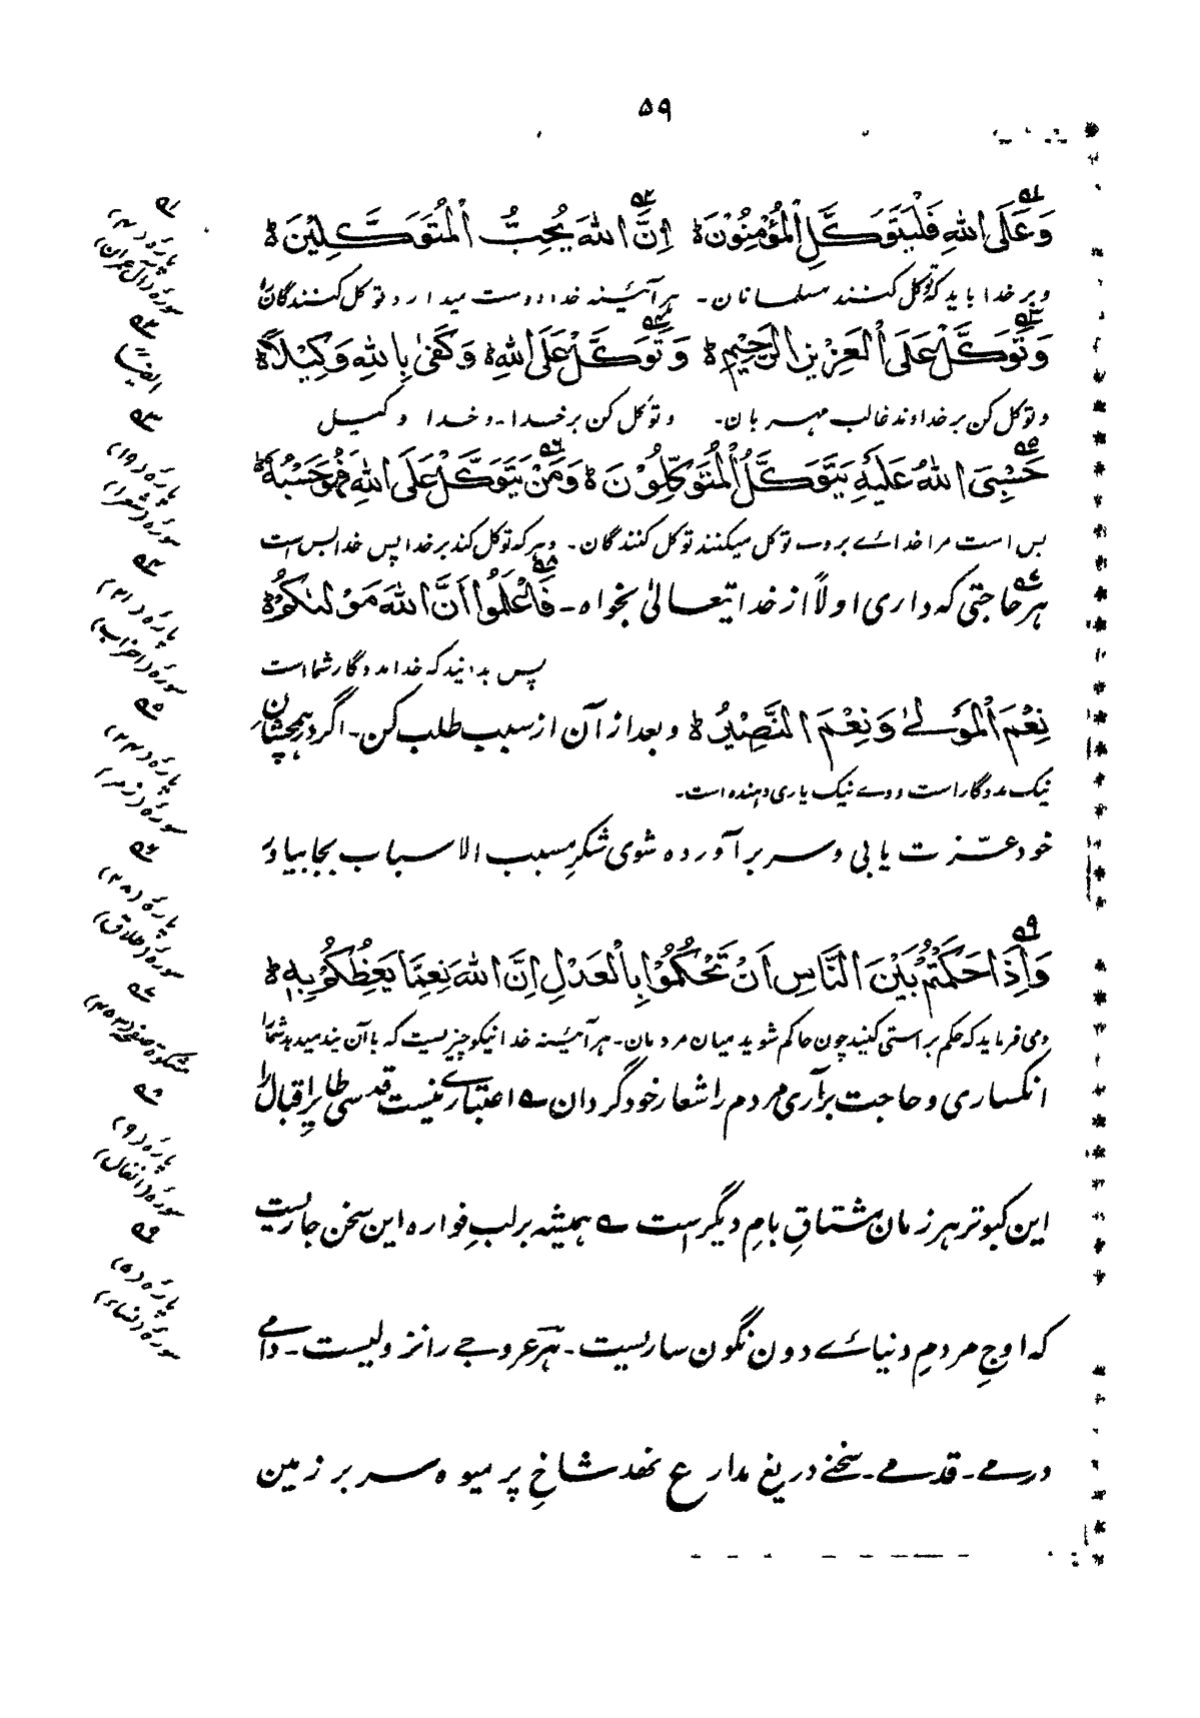 ۵۹
وَعَلَى اللهِ فَلْيَتَوَكَّلِ الْمُؤْمِنُوْنَ ط اِنَّ اللهَ يُحِبُّ الْمُتَوَكِّلِيْنَ ط
و بر خدا باید که توکل کنند مسلمانان ۔ ہر آئینہ خدا دوست میدارد توکل کنندگان را
وَتَوَكَّلْ عَلَى الْعَزِيْزِ الرَّحِيْمِ ط وَتَوَكَّلْ عَلَى اللهِ ط وَكَفٰى بِاللهِ وَكِيْلًا ط
و توکل کن بر خداوند غالب مہربان ۔ و توکل کن بر خدا ۔ و خدا وکیل
حَسْبِيَ اللهُ عَلَيْهِ يَتَوَكَّلُ الْمُتَوَكِّلُوْنَ ط وَمَنْ يَتَوَكَّلْ عَلَى اللهِ فَهُوَ حَسْبُهٗ ط
بس است مرا خدائے بر وے توکل میکنند توکل کنندگان ۔ و ہر کہ توکل کند بر خدا پس خدا بس است
ہر حاجتی کہ داری اولاً از خدا تعالیٰ بخواہ ۔ فَاعْلَمُوْا اَنَّ اللهَ مَوْلٰىكُمْ ط
پس بدانید کہ خدا مددگار شما است
نِعْمَ الْمَوْلٰے وَنِعْمَ النَّصِيْرُ ط و بعد از آن از سبب طلب کن ۔ اگر در ہمچشمان
نیک مددگار است و وے نیک یاری دہندہ است ۔
خود عزت یابی و سر بر آوردہ شوی شکرِ مسبب الاسباب بجا بیاور
وَاِذَا حَكَمْتُمْ بَيْنَ النَّاسِ اَنْ تَحْكُمُوْا بِالْعَدْلِ اِنَّ اللهَ نِعِمَّا يَعِظُكُمْ بِهٖ ط
و می فرماید کہ حکم براستی کنید چون حاکم شوید میان مردمان ۔ ہر آئینہ خدا نیکو چیزیست کہ با آن پند میدہد شما را
انکساری و حاجت برآری مردم را شعار خود گردان ے اعتبارے نیست قدسی طایرِ اقبال را
این کبوتر ہر زمان مشتاقِ بامِ دیگرست ے ہمیشہ بر لبِ فوارہ این سخن جاریست
کہ اوجِ مردمِ دنیائے دون نگون ساریست ۔ ہر عروجے را نزولیست ۔ دامے
درمے ۔ قدمے ۔ سخنے دریغ مدار ع نہد شاخِ پر میوہ سر بر زمین
۵۱
پارہ (۴)
سورہ (آل عمران)
۵۲
ایضاً
۵۳
پارہ (۱۹)
سورہ (شعرا)
۵۴
پارہ (۲۱)
سورہ (احزاب)
۵۵
پارہ (۲۴)
سورہ (زمر)
۵۶
پارہ (۲۸)
سورہ (طلاق)
۵۷
۵۸
پارہ (۹)
سورہ (انفال)
۵۹
پارہ (۵)
سورہ (نساء)